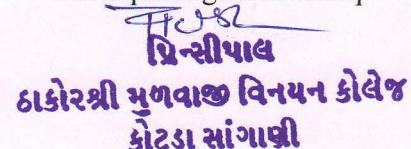 પ્રિન્સીપાલ
ઠાકોરશ્રી મુળવાજી વિનયન કોલેજ
કોટડા સાંગાણી